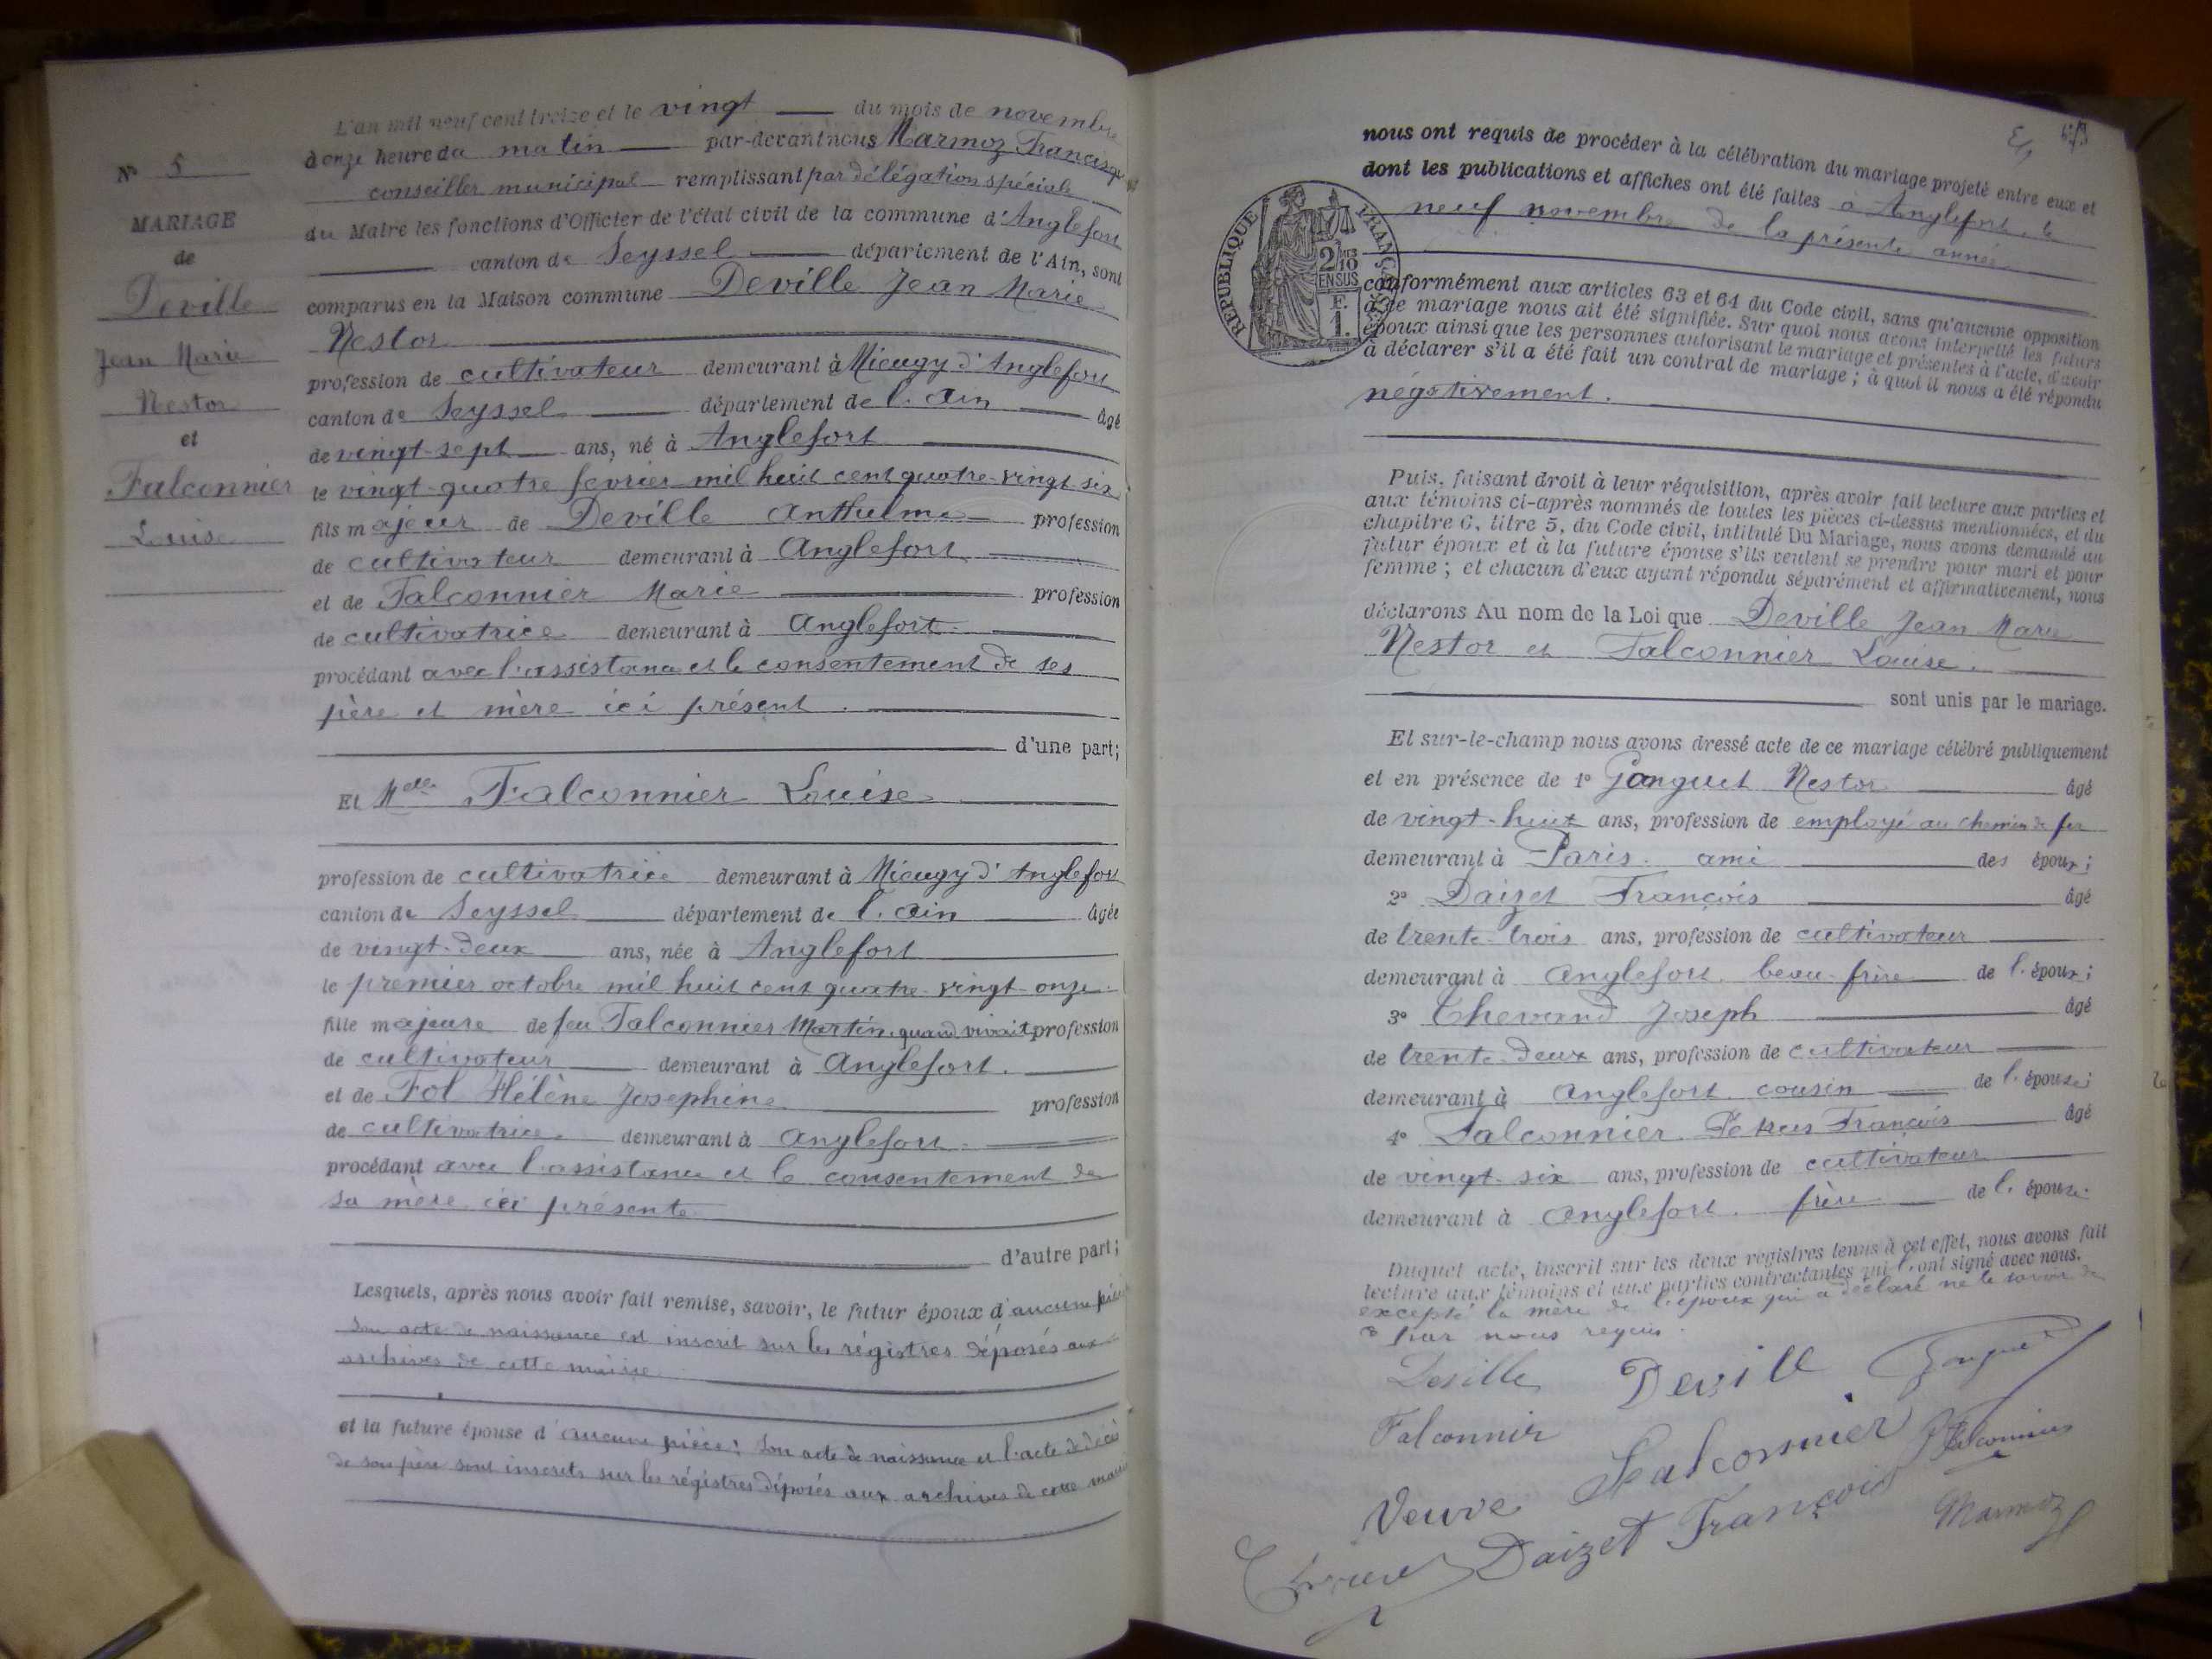 L'an mil neuf cent treize et le vingt du mois de novembre
à onze heure du matin par-devant nous Marmoz Francisque
conseiller municipal remplissant par délégation spéciale
du Maire les fonctions d'Officier de l'état civil de la commune d'Anglefort
canton de Seyssel département de l'Ain, sont
comparus en la Maison commune Deville Jean Marie
Nestor
profession de cultivateur demeurant à Mieugy d'Anglefort
canton de Seyssel département de l'Ain âgé
de vingt-sept ans, né à Anglefort
le vingt-quatre fevrier mil huit cent quatre-vingt six
fils majeur de Deville Anthelme profession
de cultivateur demeurant à Anglefort
et de Falconnier Marie profession
de cultivatrice demeurant à Anglefort
procédant avec l'assistance et le consentement de ses
père et mère ici présent.
d'une part;
Et Melle Falconnier Louise
profession de cultivatrice demeurant à Mieugy d'Anglefort
canton de Seyssel département de l'Ain âgée
de vingt-deux ans, née à Anglefort
le premier octobre mil huit cent quatre-vingt-onze.
fille majeure de feu Falconnier Martin quand vivait profession
de cultivateur demeurant à Anglefort.
et de Fol Hélène Josephine profession
de cultivatrice demeurant à Anglefort.
procédant avec l'assistance et le consentement de
sa mère ici présente
d'autre part;
Lesquels, après nous avoir fait remise, savoir, le futur époux d'aucune pièce
Son acte de naissance est inscrit sur les régistres déposés aux
archives de cette mairie.
et la future épouse d'aucune pièce: Son acte de naissance et l'acte de décès
de son père sont inscrits sur les régistres déposés aux archives de cette mairie
N° 5
MARIAGE
de
Deville
Jean Marie
Nestor
et
Falconnier
Louise
nous ont requis de procéder à la célébration du mariage projeté entre eux et
dont les publications et affiches ont été faites à Anglefort, le
neuf novembre de la présente année
RÉPUBLIQUE FRANÇAISE
2/10
EN SUS
F.
1.
conformément aux articles 63 et 64 du Code civil, sans qu'aucune opposition
à ce mariage nous ait été signifiée. Sur quoi nous avons interpellé les futurs
époux ainsi que les personnes autorisant le mariage et présentes à l'acte, d'avoir
à déclarer s'il a été fait un contrat de mariage; à quoi il nous a été répondu
négativement.
Puis, faisant droit à leur réquisition, après avoir fait lecture aux parties et
aux témoins ci-après nommés de toutes les pièces ci-dessus mentionnées, et du
chapitre 6, titre 5, du Code civil, intitulé Du Mariage, nous avons demandé au
futur époux et à la future épouse s'ils veulent se prendre pour mari et pour
femme; et chacun d'eux ayant répondu séparément et affirmativement, nous
déclarons Au nom de la Loi que Deville Jean Marie
Nestor et Falconnier Louise.
sont unis par le mariage.
Et sur-le-champ nous avons dressé acte de ce mariage célébré publiquement
et en présence de 1° Ganguet Nestor âgé
de vingt-huit ans, profession de employé au chemin de fer
demeurant à Paris. ami des époux;
2° Daizet François âgé
de trente-trois ans, profession de cultivateur
demeurant à Anglefort. beau-frère de l'époux;
3° Chevand Joseph âgé
de trente-deux ans, profession de cultivateur
demeurant à Anglefort. cousin de l'épouse;
4° Falconnier François âgé
de vingt-six ans, profession de cultivateur
demeurant à Anglefort. frère de l'épouse.
Duquel acte, inscrit sur les deux registres tenus à cet effet, nous avons fait
lecture aux témoins et aux parties contractantes qui l'ont signé avec nous.
excepté la mère de l'époux qui a déclaré ne le savoir de
par nous requis.
Deville Deville
Falconnier Falconnier Falconnier
Veuve
Daizet François Marmoz